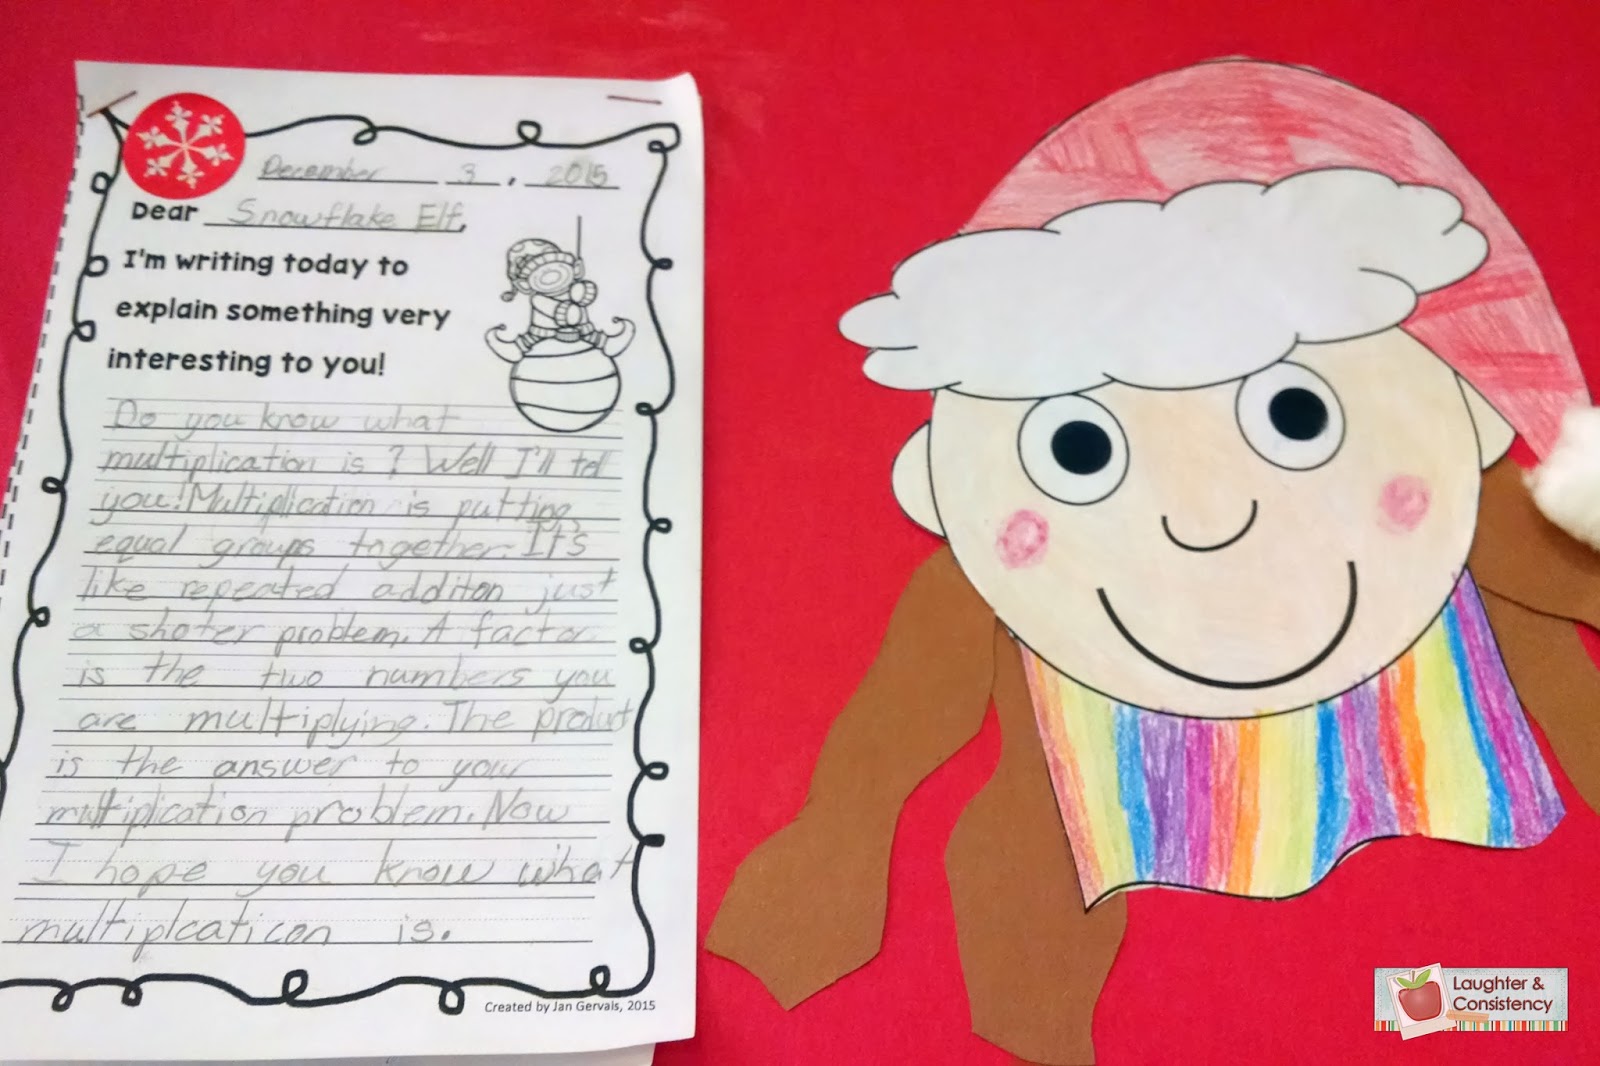 December 3, 2015
Dear Snowflake Elf,
I'm writing today to
explain something very
interesting to you!
Do you know what
multiplication is? Well I'll tell
you! Multiplication is putting
equal groups together. It's
like repeated additon just
a shoter problem. A factor
is the two numbers you
are multiplying. The product
is the answer to your
multiplication problem. Now
I hope you know what
multiplcaticon is.
Created by Jan Gervais, 2015
Laughter &
Consistency